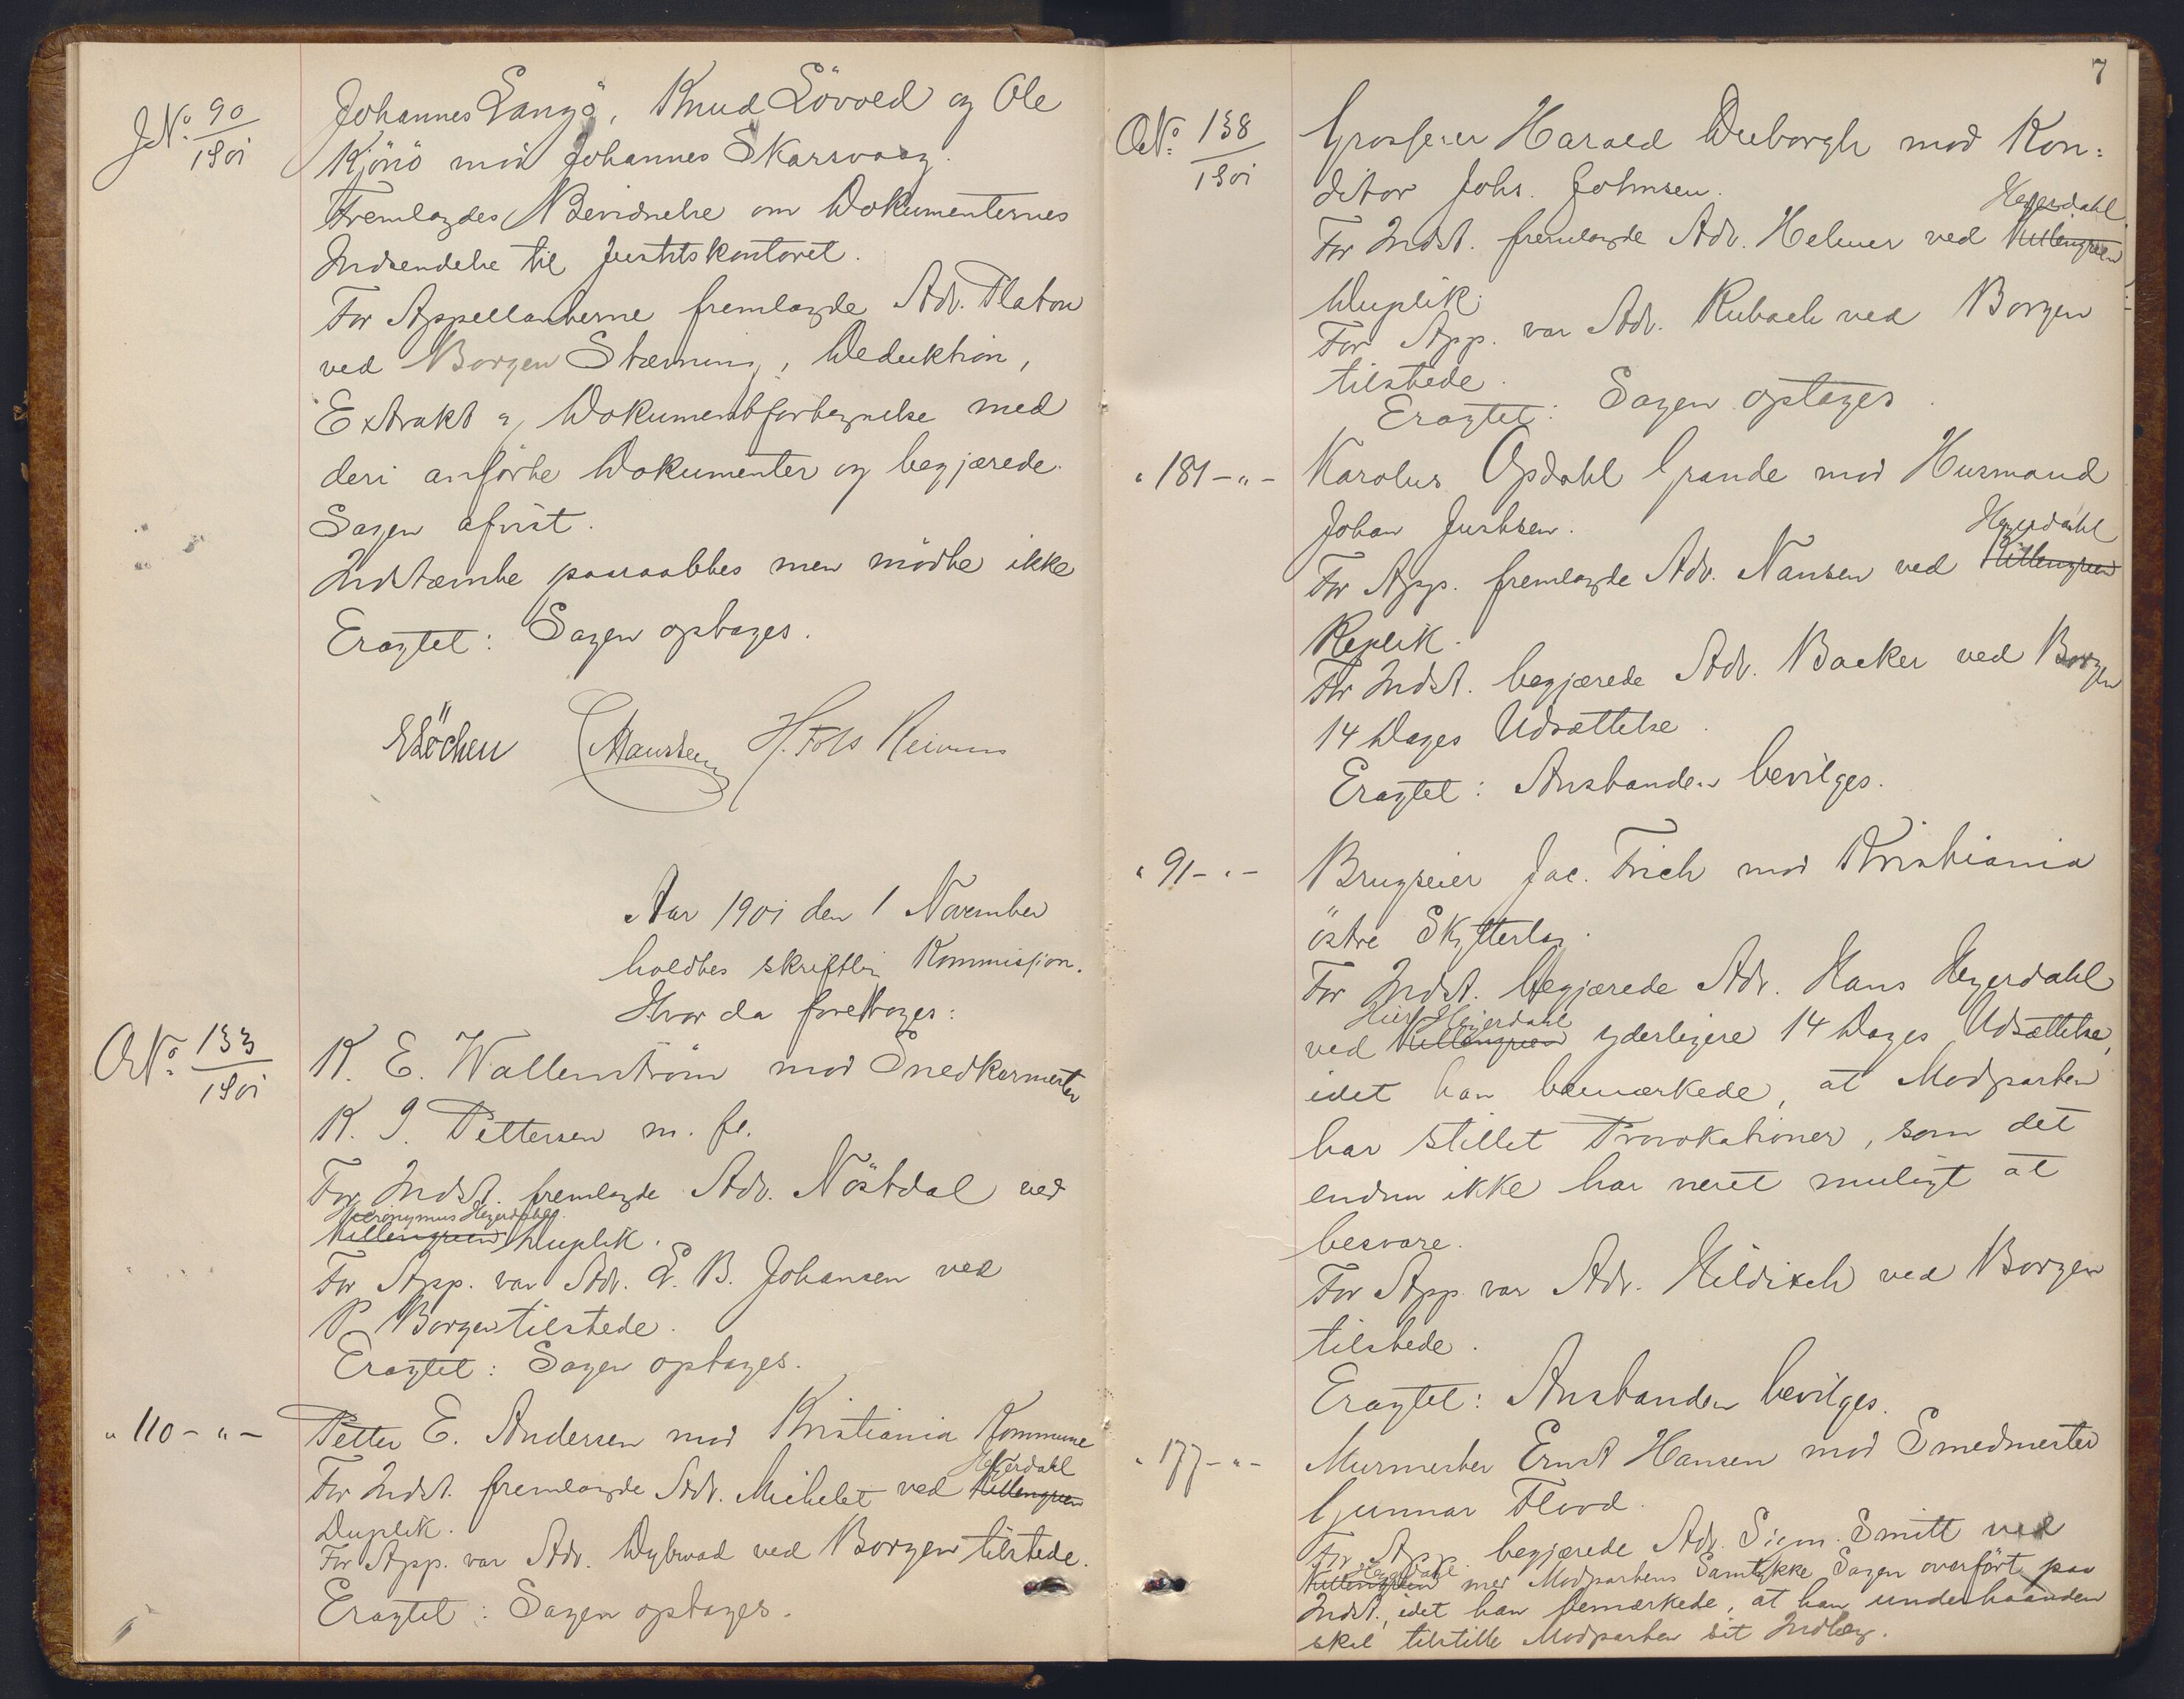 JNo. 90/1901
Johannes Langö, Knud Lövold og Ole
Kjönö mod Johannes Skarsvaag.
Fremlagdes Bevidnelse om Dokumenternes
Indsendelse til Justitskontoret.
For Appellanterne fremlagde Adv. Platou
ved Borgen Stævning, Deduktion,
Extrakt og Dokumentfortegnelse med
deri anförte Dokumenter og begjærede
Sagen afvist.
Indstævnte paaraabtes men mödte ikke
Eragtet: Sagen optages.
E Löchen CMHanssen H. Foss Reimers
Aar 1901 den 1 November
holdtes skriftlig Kommission.
Hvor da foretoges:
ONo. 133/1901
K. E. Wallenström mod Snedkermester
K. J. Pettersen m. fl.
For Indst. fremlagde Adv. Nöstdal ved
Hieronymus Heyerdahl
Killengreen Duplik.
For App. var Adv. L. B. Johansen ved
P Borgen tilstede.
Eragtet: Sagen optages.
" 110 - " -
Petter E. Andersen mod Kristiania Kommune
Heyerdahl
For Indst. fremlagde Adv. Michelet ved Killengreen
Duplik.
For App. var Adv. Dybwad ved Borgen tilstede.
Eragtet: Sagen optages.
7
ONo. 138/1901
Grosserer Harald Dieborgh mod Kon-
ditor Johs. Johnsen.
Heyerdahl
For Indst. fremlagde Adv. Helmer ved Killengreen
Duplik.
For App. var Adv. Rubach ved Borgen
tilstede.
Eragtet: Sagen optages.
" 181 - " -
Karolus Opdahl Grande mod Husmand
Johan Justsen.
Heyerdahl
For App. fremlagde Adv. Nansen ved Killengreen
Replik.
For Indst. begjærede Adv. Backer ved Borgen
14 Dages Udsættelse.
Eragtet: Anstanden bevilges.
" 91 - " -
Brugseier Jac. Trich mod Kristiania
östre Skytterlag.
For Indst. begjærede Adv. Hans Heyerdahl
Hier. Heyerdahl
ved Killengreen yderligere 14 Dages Udsættelse,
idet han bemærkede, at Modparten
har stillet Provokationer, som det
endnu ikke har været muligt at
besvare.
For App. var Adv. Hildisch ved Borgen
tilstede.
Eragtet: Anstanden bevilges.
" 177 - " -
Murmester Ernst Hansen mod Smedmester
Gunnar Flood.
For App. begjærede Adv. Sigm. Smitt ved
Heyerdahl
Killengreen med Modpartens Samtykke Sagen overfört paa
Indst., idet han bemærkede, at han underhaanden
skal tilstille Modparten sit Indlæg.